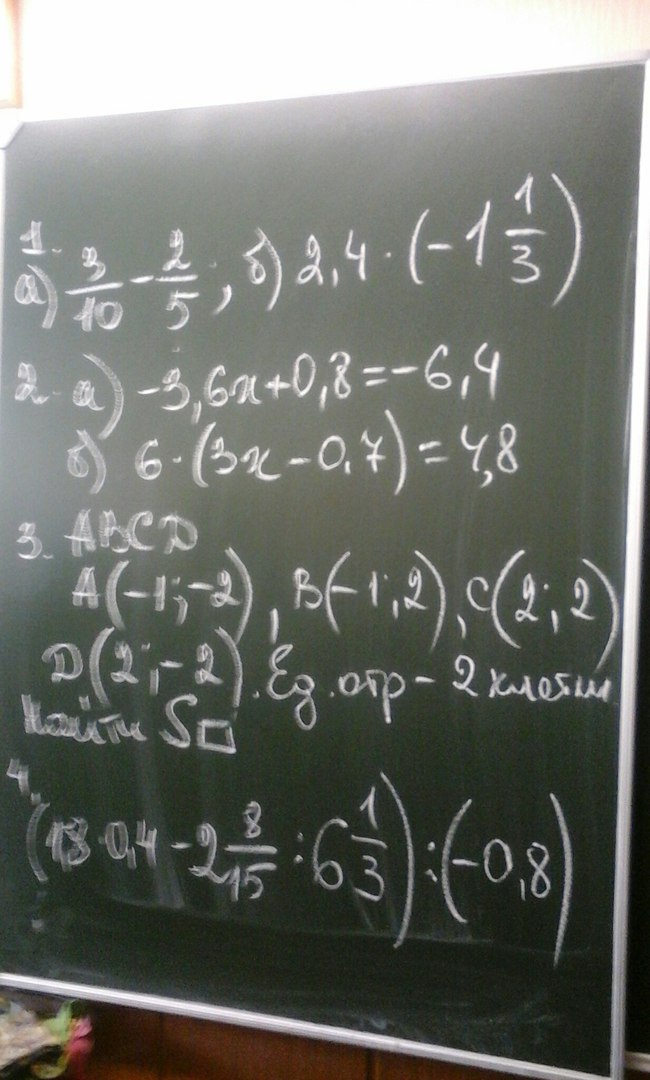 1.
а) 3/10 - 2/5 ; б) 2,4 · (-1 1/3)
2. а) -3,6x+0,8=-6,4
б) 6·(3x-0,7)=4,8
3. ABCD
A(-1;-2), B(-1;2), C(2;2)
D(2;-2). Ед. отр - 2 клетки
Найти S□
4.
(18·0,4 - 2 8/15 : 6 1/3) : (-0,8)